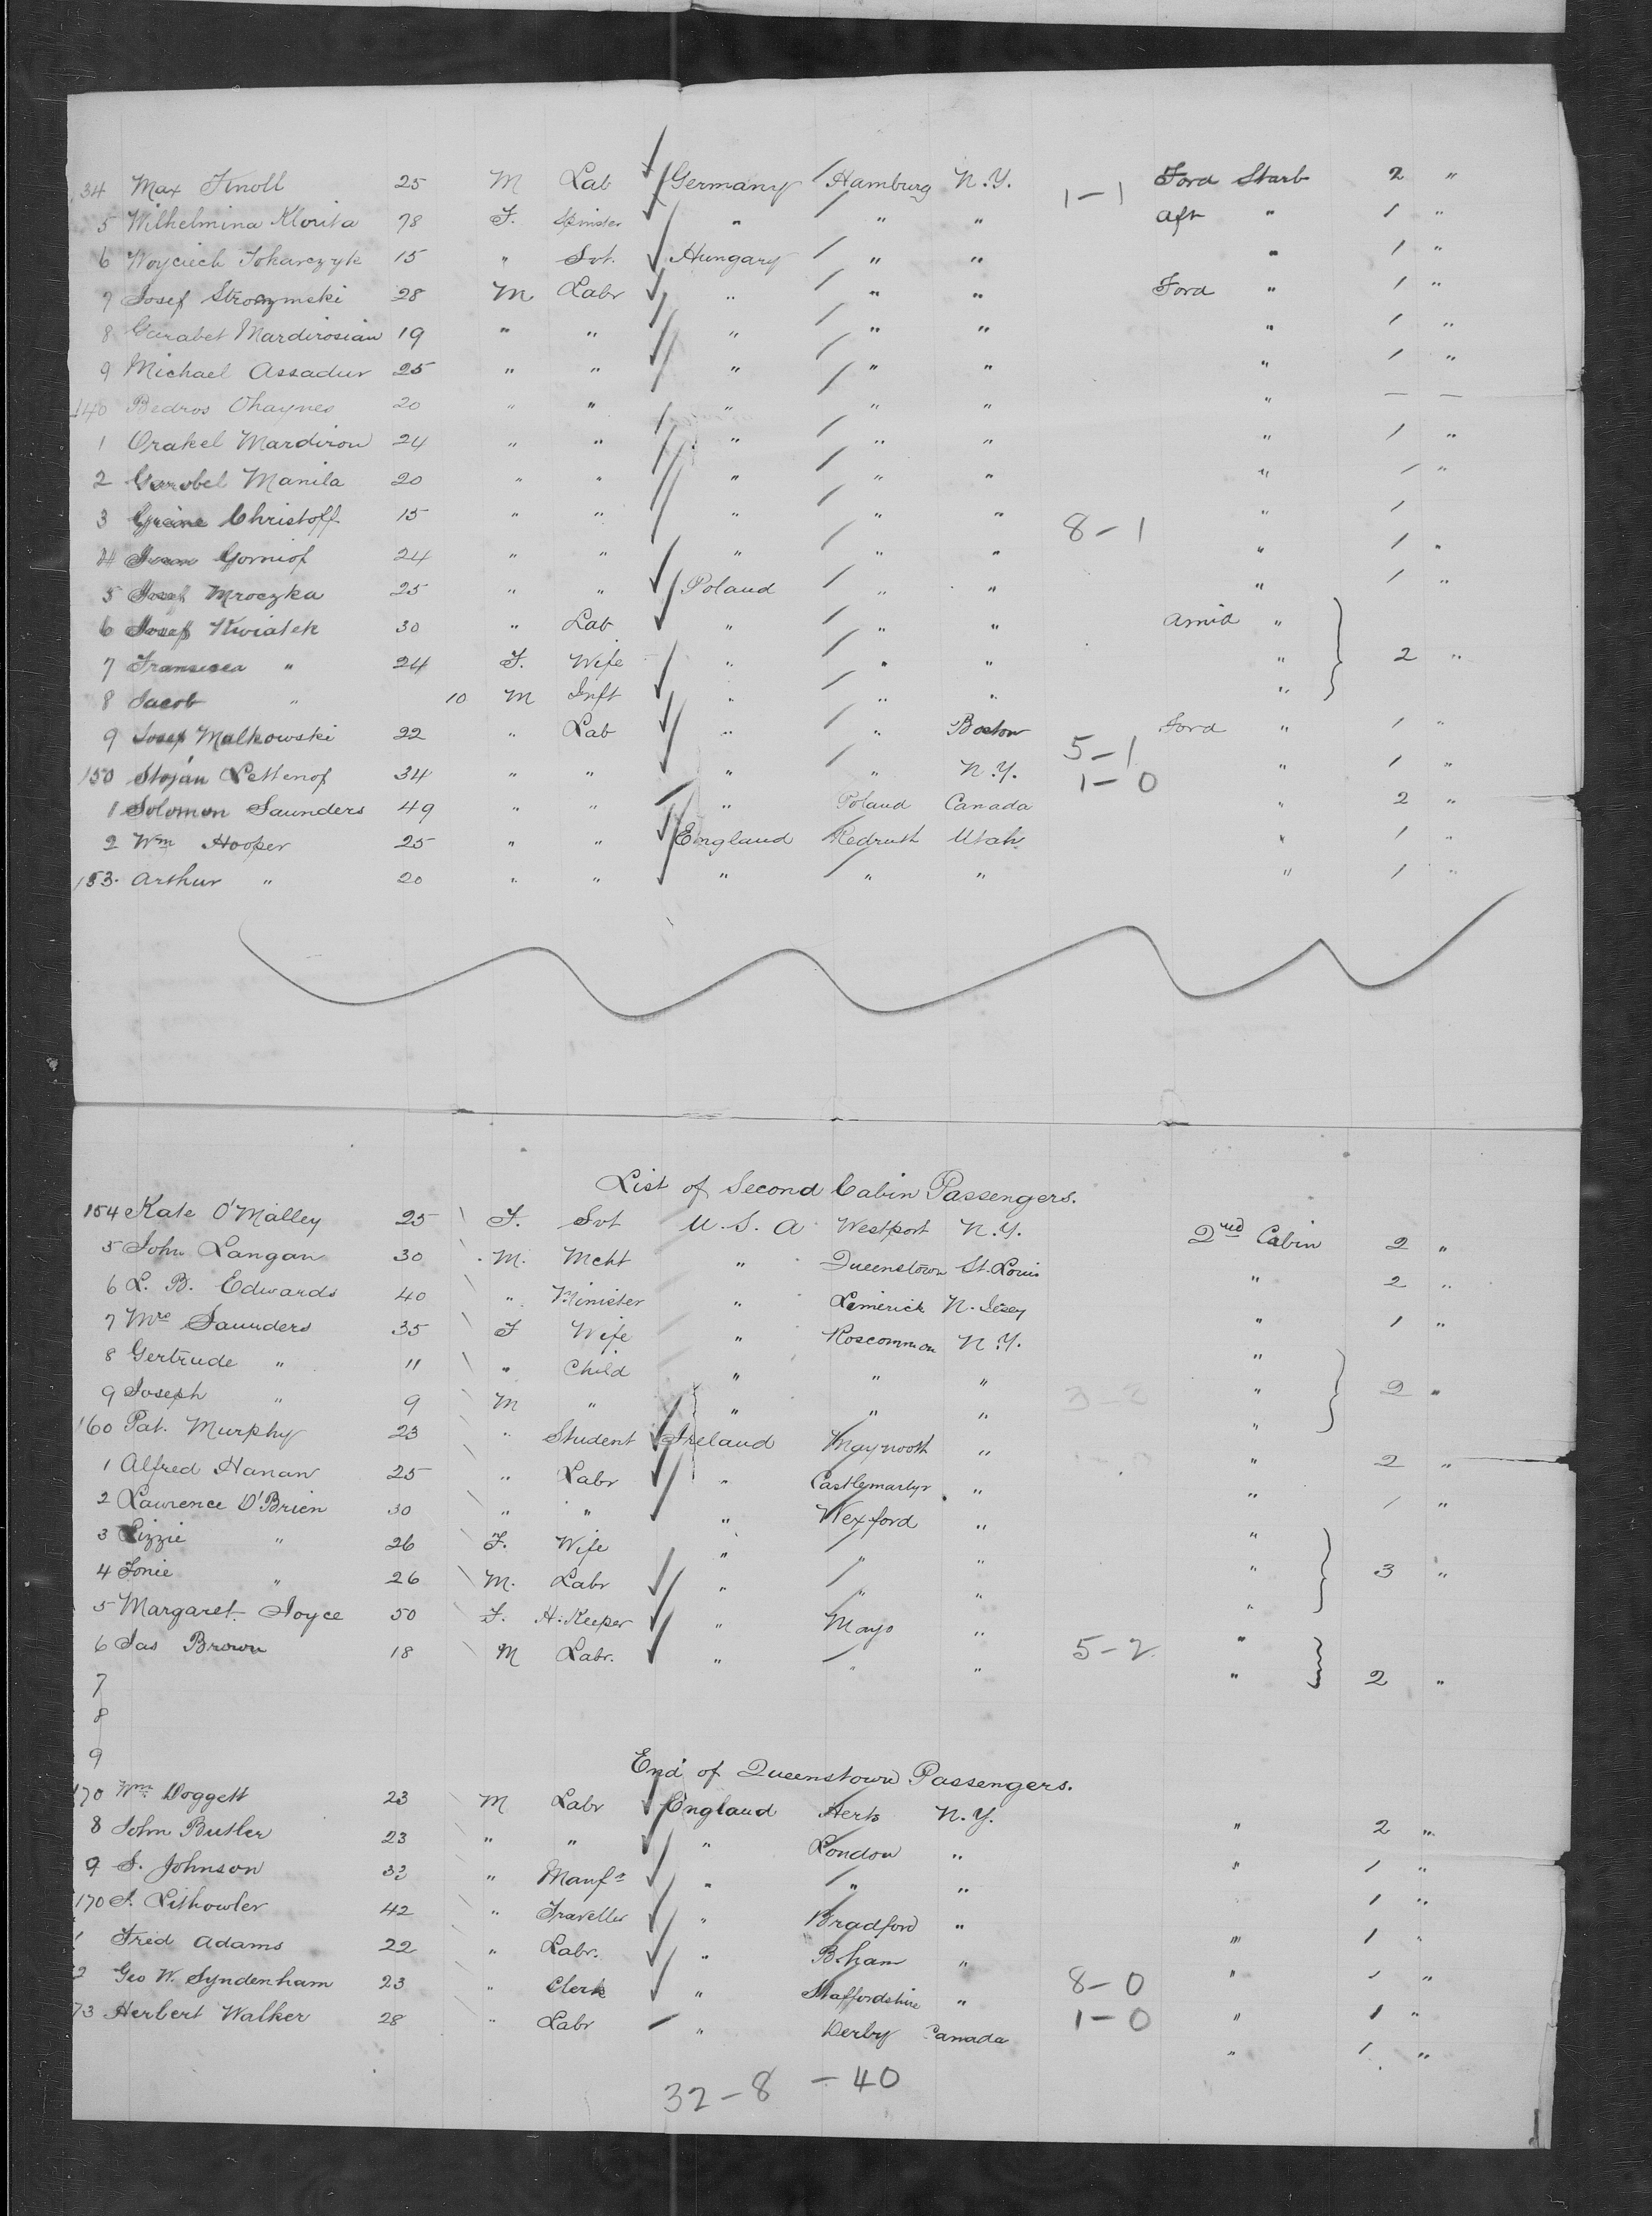 34 Max Knoll 25 M Lab Germany Hamburg N.Y. 1-1 Ford Starb 2 "
5 Wilhelmina Klorita 78 F. Spinster " " " Aft " 1 "
6 Woyciech Tokarczyk 15 " Svt. Hungary " " " 1 "
7 Josef 28 M Labr " " " Ford " 1 "
8 Garabet Mardirosian 19 " " " " " " 1 "
9 Michael Assadur 25 " " " " " " 1 "
140 Bedros Ohaynes 20 " " " " " " — —
1 Orakel Mardirou 24 " " " " " " 1 "
2 Garobel Manila 20 " " " " " " 1 "
3 Christoff 15 " " " " " 8-1 " 1
4 Ivan Gorniof 24 " " " " " " 1 "
5 Josef Mroczka 25 " " Poland " " " 1 "
6 Josef Kwiatek 30 " Lab " " " Amid "
7 Fransisca " 24 F. Wife " " " " 2 "
8 Jacob " 10 M Inft " " " "
9 Josef Malkowski 22 " Lab " " Boston 5-1 Ford " 1 "
150 Stojan Lettenof 34 " " " " N.Y. 1-0 " 1 "
1 Solomon Saunders 49 " " " Poland Canada " 2 "
2 Wm Hooper 25 " " England Redruth Utah " 1 "
153. Arthur " 20 " " " " " " 1 "
List of Second Cabin Passengers.
154 Kate O'Malley 25 F. Svt U.S.A Westport N.Y. 2nd Cabin 2 "
5 John Langan 30 M. Mcht " Queenstown St. Louis " 2 "
6 L. B. Edwards 40 " Minister " Limerick N. Jesey " 1 "
7 Mrs Saunders 35 F Wife " Roscommon N.Y. "
8 Gertrude " 11 " Child " " " " 2 "
9 Joseph " 9 M " " " " "
160 Pat. Murphy 23 " Student Ireland Maynooth " " 2 "
1 Alfred Hanan 25 " Labr " Castlemartyr " " 1 "
2 Lawrence O'Brien 30 " " " Wexford " "
3 Lizzie " 26 F. Wife " " " " 3 "
4 Tonie " 26 M. Labr " " " "
5 Margaret Joyce 50 F. H. Keeper " Mayo " "
6 Jas Brown 18 M Labr. " " " 5-2 " 2 "
7
8
9
End of Queenstown Passengers.
170 Wm Doggett 23 M Labr England Herts N.Y. " 2 "
8 John Butler 23 " " " London " " 1 "
9 S. Johnson 33 " Manfr " " " 1 "
170 J. Lishowler 42 " Traveller " Bradford " " 1 "
1 Fred Adams 22 " Labr. " B.ham " " 1 "
2 Geo W. Syndenham 23 " Clerk " Staffordshire " 8-0 " 1 "
73 Herbert Walker 28 " Labr " Derby Canada 1-0 " 1 "
32-8 - 40